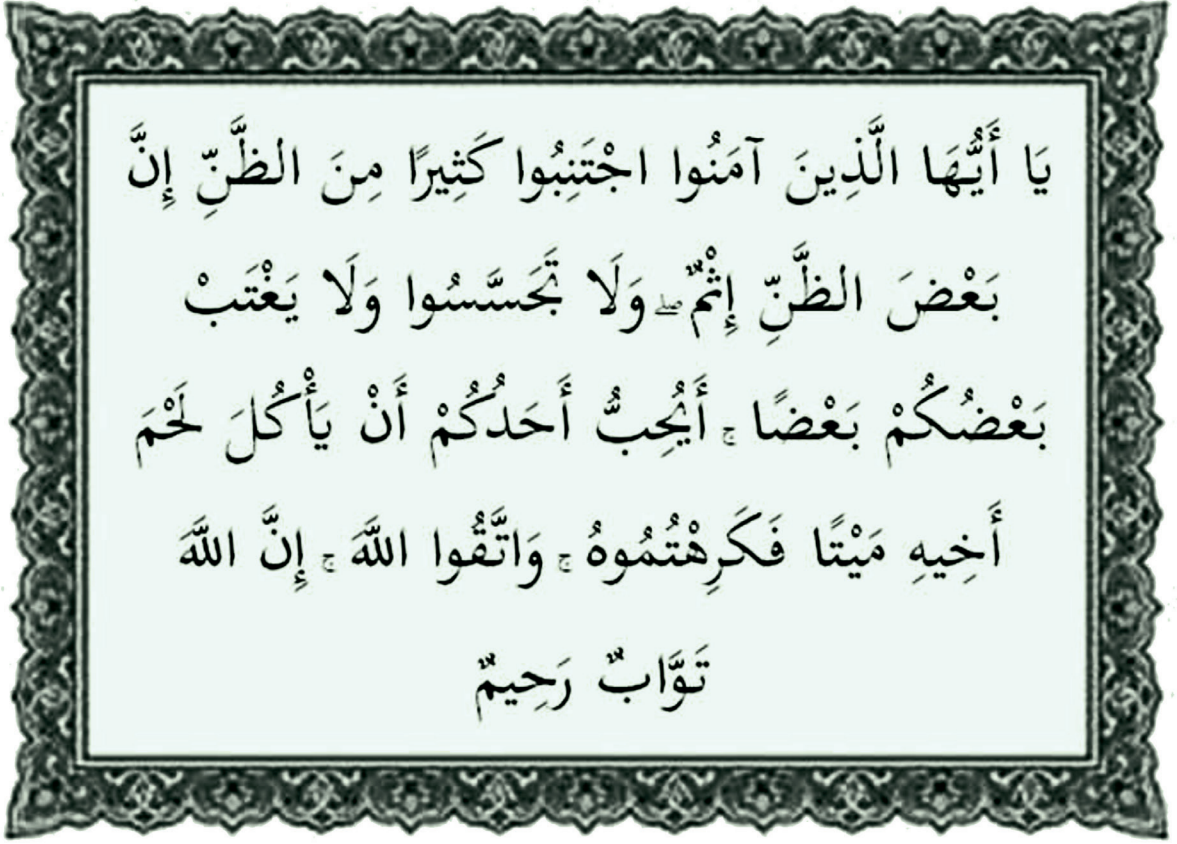 يَا أَيُّهَا الَّذِينَ آمَنُوا اجْتَنِبُوا كَثِيرًا مِنَ الظَّنِّ إِنَّ
بَعْضَ الظَّنِّ إِثْمٌ ۖ وَلَا تَجَسَّسُوا وَلَا يَغْتَبْ
بَعْضُكُمْ بَعْضًا ۚ أَيُحِبُّ أَحَدُكُمْ أَنْ يَأْكُلَ لَحْمَ
أَخِيهِ مَيْتًا فَكَرِهْتُمُوهُ ۚ وَاتَّقُوا اللَّهَ ۚ إِنَّ اللَّهَ
تَوَّابٌ رَحِيمٌ